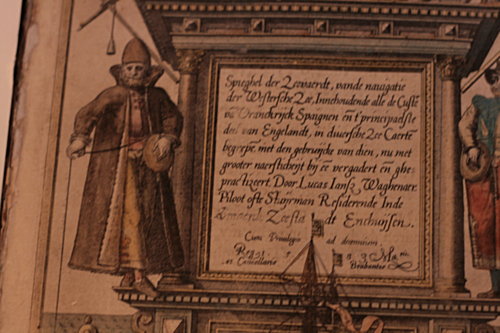 Spieghel der Zeevaerdt, vande nauigatie
der Westersche Zee, Innehoudende alle de Custē
vā Vranckrijck Spaignen eñ t'principaelste
deel van Engelandt, in diuersche Zee Caertē
begrepē, met den gebruijcke van dien, nu met
grooter naersticheijt bij eē vergadert eñ ghe-
practizeert. Door Lucas Iansz Waghenaer
Piloot ofte Stuijrman Residerende Inde
Zeesta dt Enchuijsen.
Cum Priuilegio ad decennium.
Reg. Ma.
et Cancellarie Brabantie